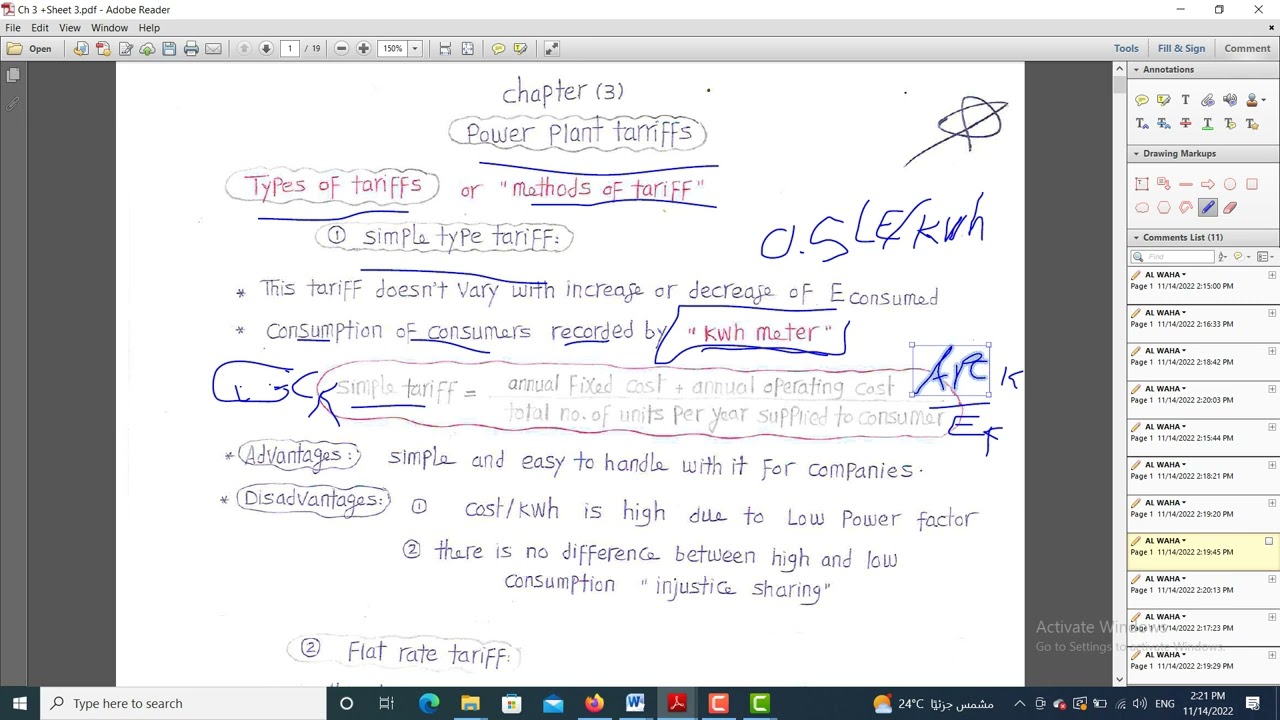 Ch 3 +Sheet 3.pdf - Adobe Reader
File Edit View Window Help
Open 1 / 19 150% Tools Fill & Sign Comment
chapter (3)
Power plant tarriffs
Types of tariffs or "methods of tariff"
① simple type tariff:
0.5 LE/kwh
* This tariff doesn't vary with increase or decrease of E consumed
* Consumption of consumers recorded by "kwh meter"
simple tariff = annual fixed cost + annual operating cost
total no. of units per year supplied to consumer
* Advantages: simple and easy to handle with it for companies.
* Disadvantages: ① cost/kwh is high due to Low Power factor
② there is no difference between high and low
consumption "injustice sharing"
② Flat rate tariff:
Annotations
Drawing Markups
Comments List (11)
Find
AL WAHA
Page 1 11/14/2022 2:15:00 PM
AL WAHA
Page 1 11/14/2022 2:16:33 PM
AL WAHA
Page 1 11/14/2022 2:18:42 PM
AL WAHA
Page 1 11/14/2022 2:20:03 PM
AL WAHA
Page 1 11/14/2022 2:15:44 PM
AL WAHA
Page 1 11/14/2022 2:18:21 PM
AL WAHA
Page 1 11/14/2022 2:19:20 PM
AL WAHA
Page 1 11/14/2022 2:19:45 PM
AL WAHA
Page 1 11/14/2022 2:20:13 PM
AL WAHA
Page 1 11/14/2022 2:17:23 PM
AL WAHA
Page 1 11/14/2022 2:19:29 PM
Activate Windows
Go to Settings to activate Windows.
Type here to search
24°C مشمس جزئيًا ENG 2:21 PM
11/14/2022